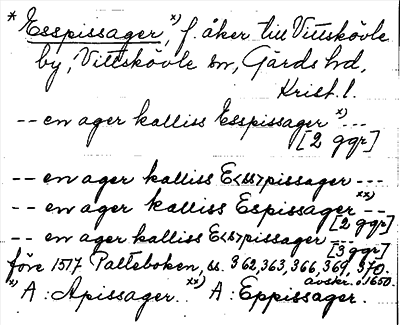 * Esspissager, x) f. åker till Vittskövle
by, Vittskövle sn, Gärds hd,
Krist. l.
-- en ager kalliss Esspissager x) ---
[2 ggr]
-- en ager kalliss E<ss>pissager ---
-- en ager kalliss Espissager xx) --
[2 ggr]
-- en ager kalliss E<s>pissager ---
[3 ggr]
före 1517 Palteboken, ss. 362, 363, 366, 369, 370.
avskr. o. 1650.
x) A: Apissager. xx) A: Eppissager.